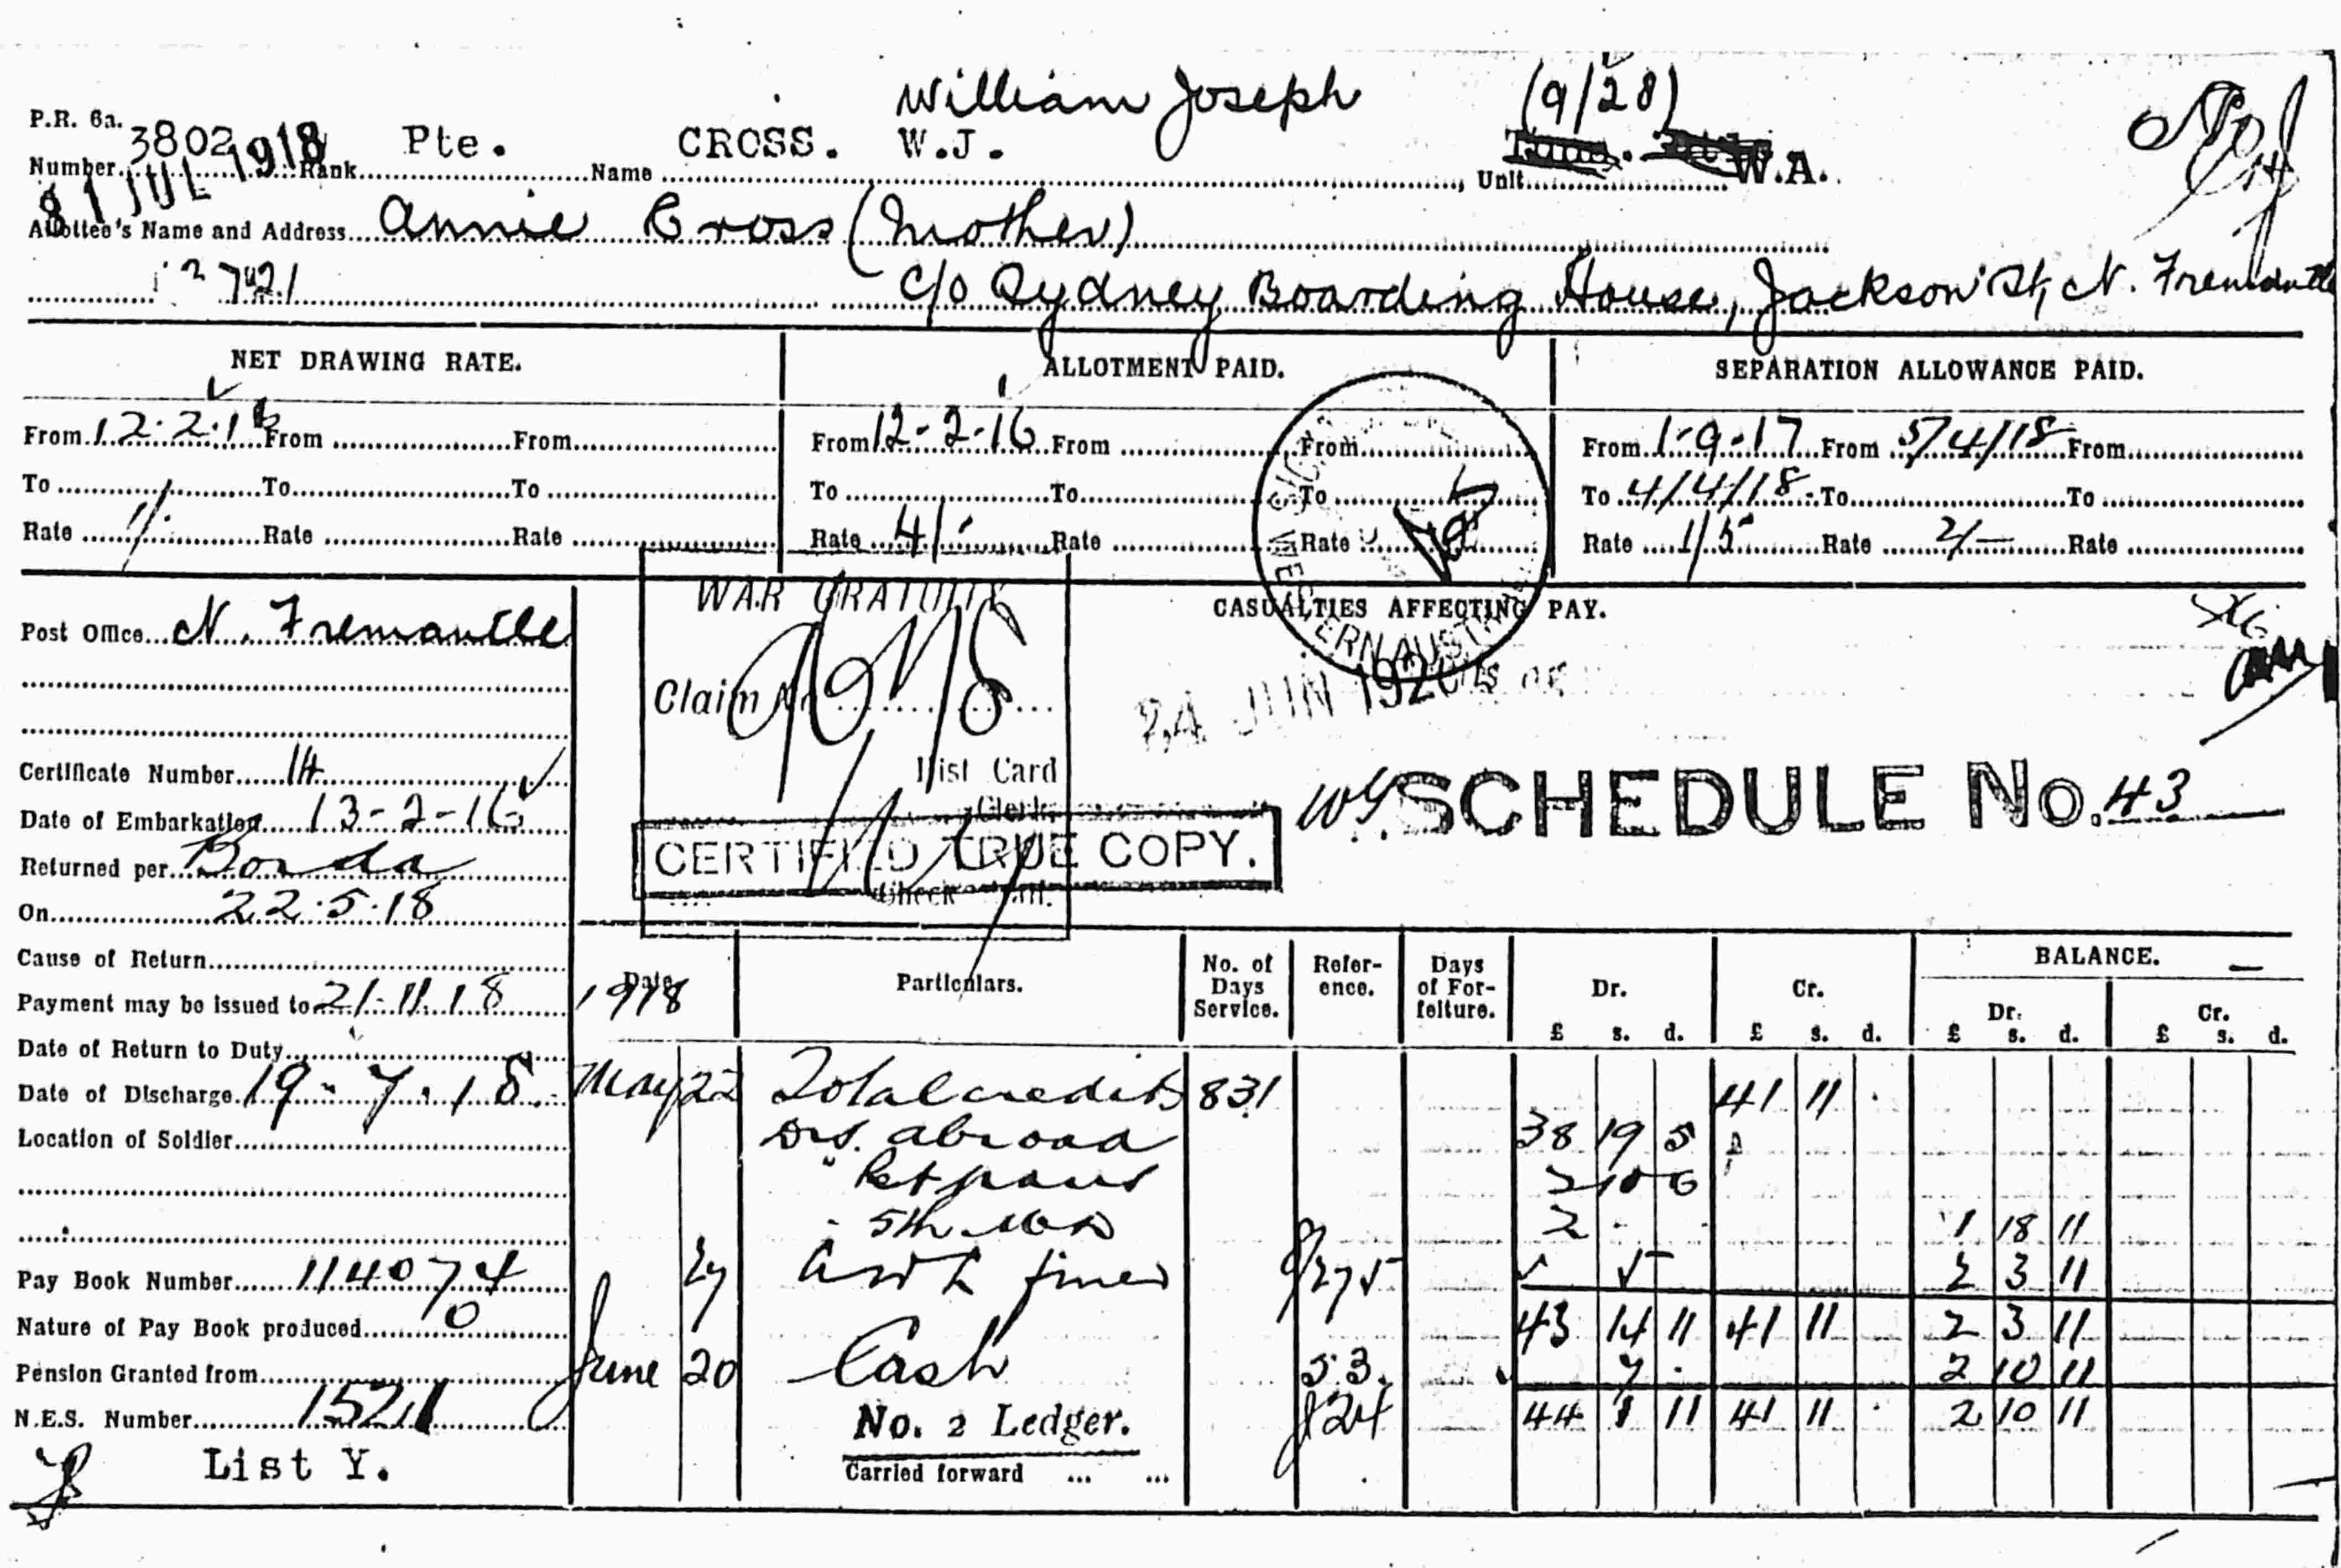 William Joseph (9/28)
P.R. 6a.
Number 3802 Rank Pte. Name CROSS. W.J. , Unit W.A.
31 JUL 1918
Allottee's Name and Address Annie Cross (Mother)
c/o Sydney Boarding House, Jackson St, N. Fremantle
NET DRAWING RATE. ALLOTMENT PAID. SEPARATION ALLOWANCE PAID.
From 12.2.16 From From From 12-2-16 From From From 1-9-17 From 5/4/18 From
To To To To To To To 4/4/18 To To
Rate 1/- Rate Rate Rate 4/- Rate Rate Rate 1/5 Rate 2/- Rate
WAR GRATUITY
Claim No
Hist Card
Clerk
CERTIFIED TRUE COPY.
Check
CASUALTIES AFFECTING PAY.
WESTERN AUST
24 JUN 1920
SCHEDULE No. 43
Post Office N. Fremantle
Certificate Number 14
Date of Embarkation 13-2-16
Returned per Borda
On 22.5.18
Cause of Return
Payment may be issued to 21.11.18
Date of Return to Duty
Date of Discharge 19-7-18
Location of Soldier
Pay Book Number 114074
Nature of Pay Book produced 0
Pension Granted from
N.E.S. Number 15211
List Y.
Date Particulars. No. of Days Service. Reference. Days of Forfeiture. Dr. Cr. BALANCE.
1918 £ s. d. £ s. d. Dr. £ s. d. Cr. £ s. d.
May 22 Total credits 831 41 11 .
Drs. abroad 38 19 5
2 10 6
5th 2 . . 1 18 11
27 AWL fines 5 2 3 11
43 14 11 41 11 2 3 11
June 20 Cash 53. 7 . 2 10 11
No. 2 Ledger. J24 44 1 11 41 11 . 2 10 11
Carried forward ... ...